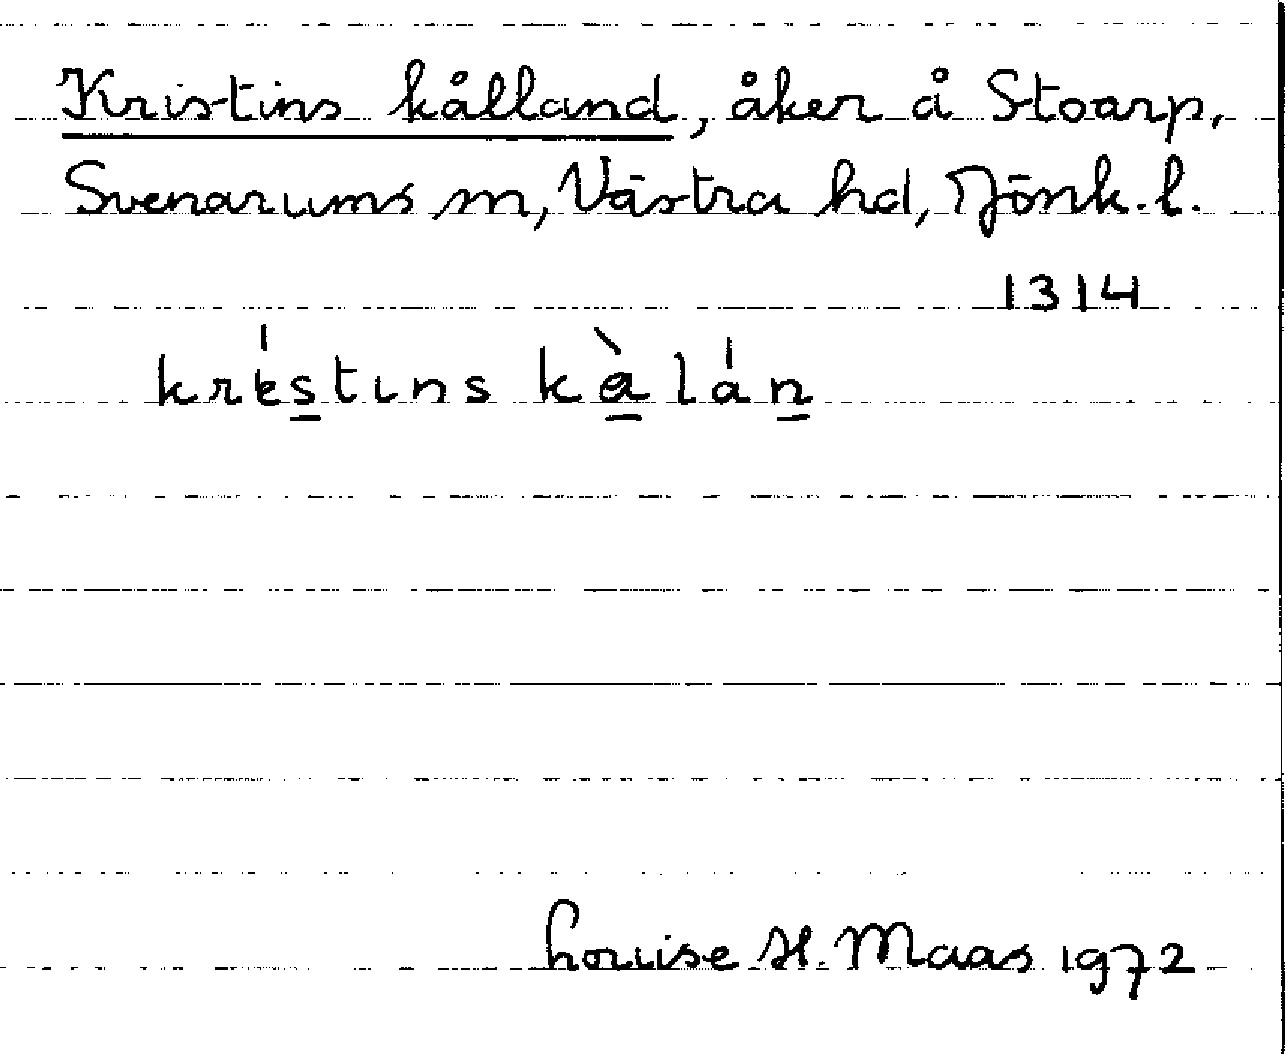 Kristins kålland, åker å Stoarp,
Svenarums sn, Västra hd, Jönk. l.
1314
Louise H. Maas 1972